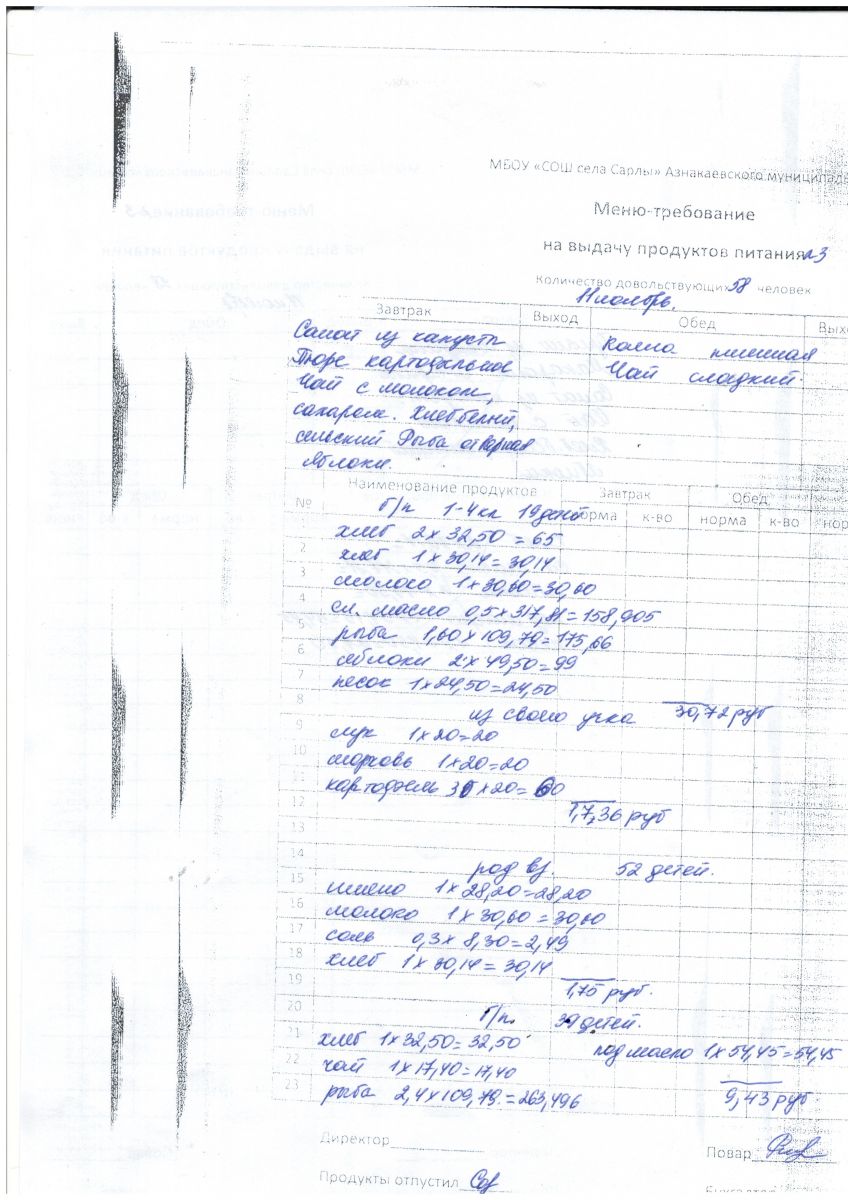 МБОУ «СОШ села Сарлы» Азнакаевского муниципаль
Меню-требование
на выдачу продуктов питания №3
Количество довольствующих 58 человек
11 ноябрь.
Завтрак Выход Обед Вых
Салат из капусты Каша пшенная
Пюре картофельное Чай сладкий.
Чай с молоком,
сахаром. Хлеб белый,
сельский Рыба отварная
Яблоки.
№ Наименование продуктов Завтрак Обед
б/п 1-4 кл 19 детей норма к-во норма к-во нор
хлеб 2 х 32,50 = 65
2 хлеб 1 х 30,14 = 30,14
3 молоко 1 х 30,60 = 30,60
4 сл. масло 0,5 х 317,81 = 158,905
5 рыба 1,60 х 109,79 = 175,66
6 яблоки 2 х 49,50 = 99
7 песок 1 х 24,50 = 24,50
8 30,72 руб
из своего
9 лук 1 х 20 = 20
10 морковь 1 х 20 = 20
11 картофель 3 х 20 = 60
12 17,36 руб
13
14 род вз. 52 детей.
15 пшено 1 х 28,20 = 28,20
16 молоко 1 х 30,60 = 30,60
17 соль 0,3 х 8,30 = 2,49
18 хлеб 1 х 30,14 = 30,14
19 1,75 руб.
20 б/п. 39 детей.
21 хлеб 1 х 32,50 = 32,50 под масло 1 х 54,45 = 54,45
22 чай 1 х 17,40 = 17,40
23 рыба 2,4 х 109,79 = 263,496 9,43 руб
Директор
Повар
Продукты отпустил